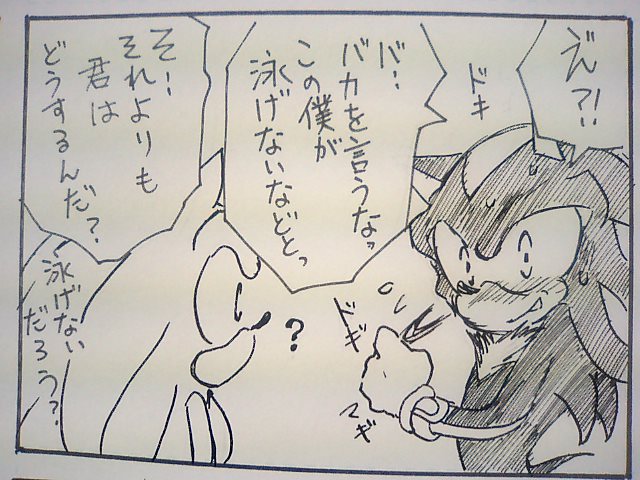 ドキ
バ…
バカを言うなっ
この僕が
泳げないなどとっ
ドギ
マギ
そ…
それよりも
君は
どうするんだ?
泳げない
だろう?
?